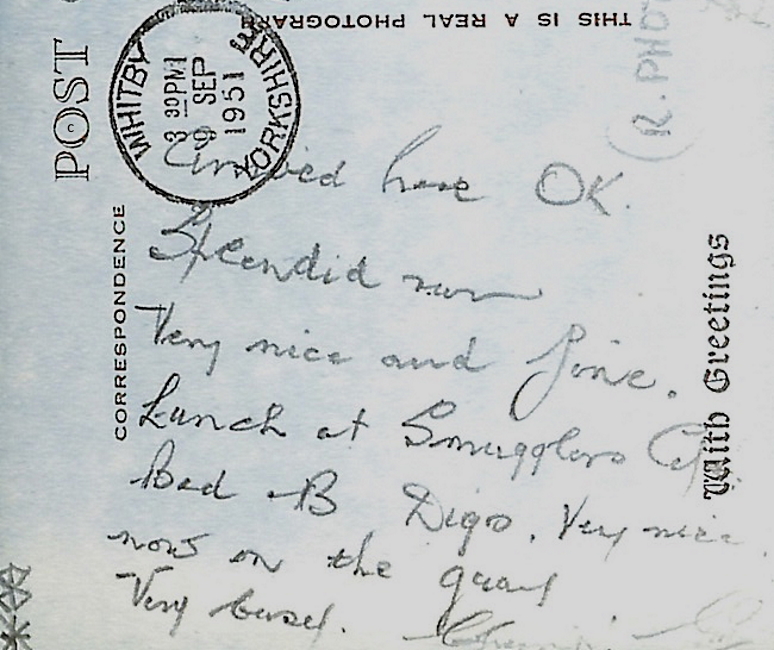 THIS IS A REAL PHOTOGRAPH
(R. PHOT
POST
WHITBY
YORKSHIRE
3 30PM
9 SEP
1951
CORRESPONDENCE
With Greetings
Arrived here OK.
Splendid run
Very nice and fine.
Lunch at Smugglers
Bed B Digs. Very nice.
now on the quay
Very busy.